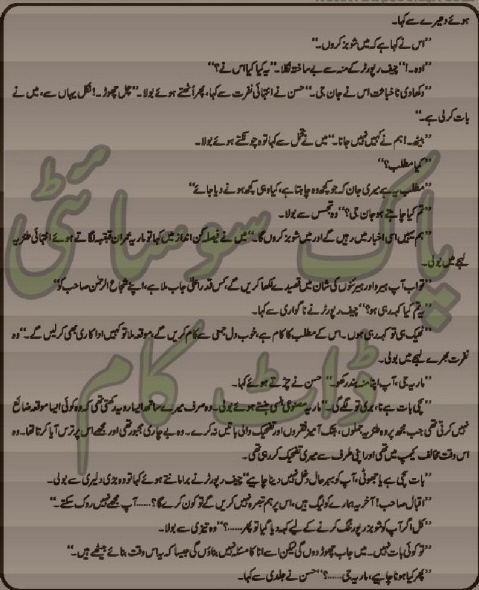 ہوئے دھیرے سے کہا۔
"اس نے کہا ہے کہ میں شوبز کروں۔"
"اوہ۔!" چیف رپورٹر کے منہ سے بے ساختہ نکلا۔ "یہ کیا کیا اس نے؟"
"دکھا دی نا خباثت اس نے جان جی۔" حسن نے انتہائی نفرت سے کہا، پھر اٹھتے ہوئے بولا۔ "چل چھوڑ۔! نکل یہاں سے، میں نے
بات کر لی ہے۔"
"بیٹھ۔! ہم نے کہیں نہیں جانا۔" میں نے تحمل سے کہا تو وہ چونکتے ہوئے بولا۔
"کیا مطلب؟"
"مطلب یہ ہے میری جان کہ جو کچھ وہ چاہتا ہے، کیا وہی کچھ ہونے دیا جائے"
"تم کیا چاہتے ہو جان جی؟" وہ تجسس سے بولا۔
"ہم یہیں اسی اخبار میں رہیں گے اور میں شوبز کروں گا۔" میں نے فیصلہ کن انداز میں کہا تو ماریہ عمران قہقہہ لگاتے ہوئے انتہائی طنزیہ
لہجے میں بولی۔
"تو اب آپ ہیرو اور ہیروئنوں کی شان میں قصیدے لکھا کریں گے، کس قدر اعلیٰ جاب ملا ہے، اپنے شجاع الرحمٰن صاحب کو"
"یہ تم کیا کہہ رہی ہو؟" چیف رپورٹر نے ناگواری سے کہا۔
"ٹھیک ہی تو کہہ رہی ہوں۔ اس کے مطلب کا کام ہے، خوب دل جمعی سے کام کریں گے، موقعہ ملا تو کہیں اداکاری بھی کر لیں گے۔" وہ
نفرت بھرے لہجے میں بولی۔
"ماریہ جی، آپ اپنا منہ بند رکھو۔" حسن نے چڑتے ہوئے کہا۔
"سچی بات ہے نا، بری تو لگے گی۔" ماریہ مصنوعی ہنسی ہنستے ہوئے بولی۔ وہ صرف میرے ساتھ ایسا رویہ رکھتی تھی کہ وہ کوئی ایسا موقعہ ضائع
نہیں کرتی تھی جب مجھ پر وہ طنزیہ جملوں، ہتک آمیز فقروں اور تضحیک والی باتیں نہ کرے۔ وہ بے چاری مجبور تھی اور مجھے اس پر ترس آیا کرتا تھا۔ وہ
اس وقت مخالف کیمپ میں تھی اور اپنی طرف سے میری تضحیک کر رہی تھی۔
"بات سچی ہے یا جھوٹی، آپ کو بہرحال دخل نہیں دینا چاہیے" چیف رپورٹر نے برا مانتے ہوئے کہا تو وہ بڑی دلیری سے بولی۔
"اقبال صاحب! آخر یہ ہمارے کولیگ ہیں، اس پر ہم تبصرہ نہیں کریں گے تو کون کرے گا؟......آپ مجھے نہیں روک سکتے۔"
"کل اگر آپ کو شوبز رپورٹنگ کرنے کے لیے کہہ دیا گیا تو پھر......؟" وہ تیزی سے بولا۔
"تو کوئی بات نہیں۔ میں جاب چھوڑ دوں گی لیکن اسے انا کا مسئلہ نہیں بناؤں گی جیسا کہ یہ اس وقت بنائے بیٹھے ہیں۔"
"پھر کیا ہونا چاہیے، ماریہ جی......؟" حسن نے جلدی سے کہا۔
پاک سوسائٹی
ڈاٹ کام